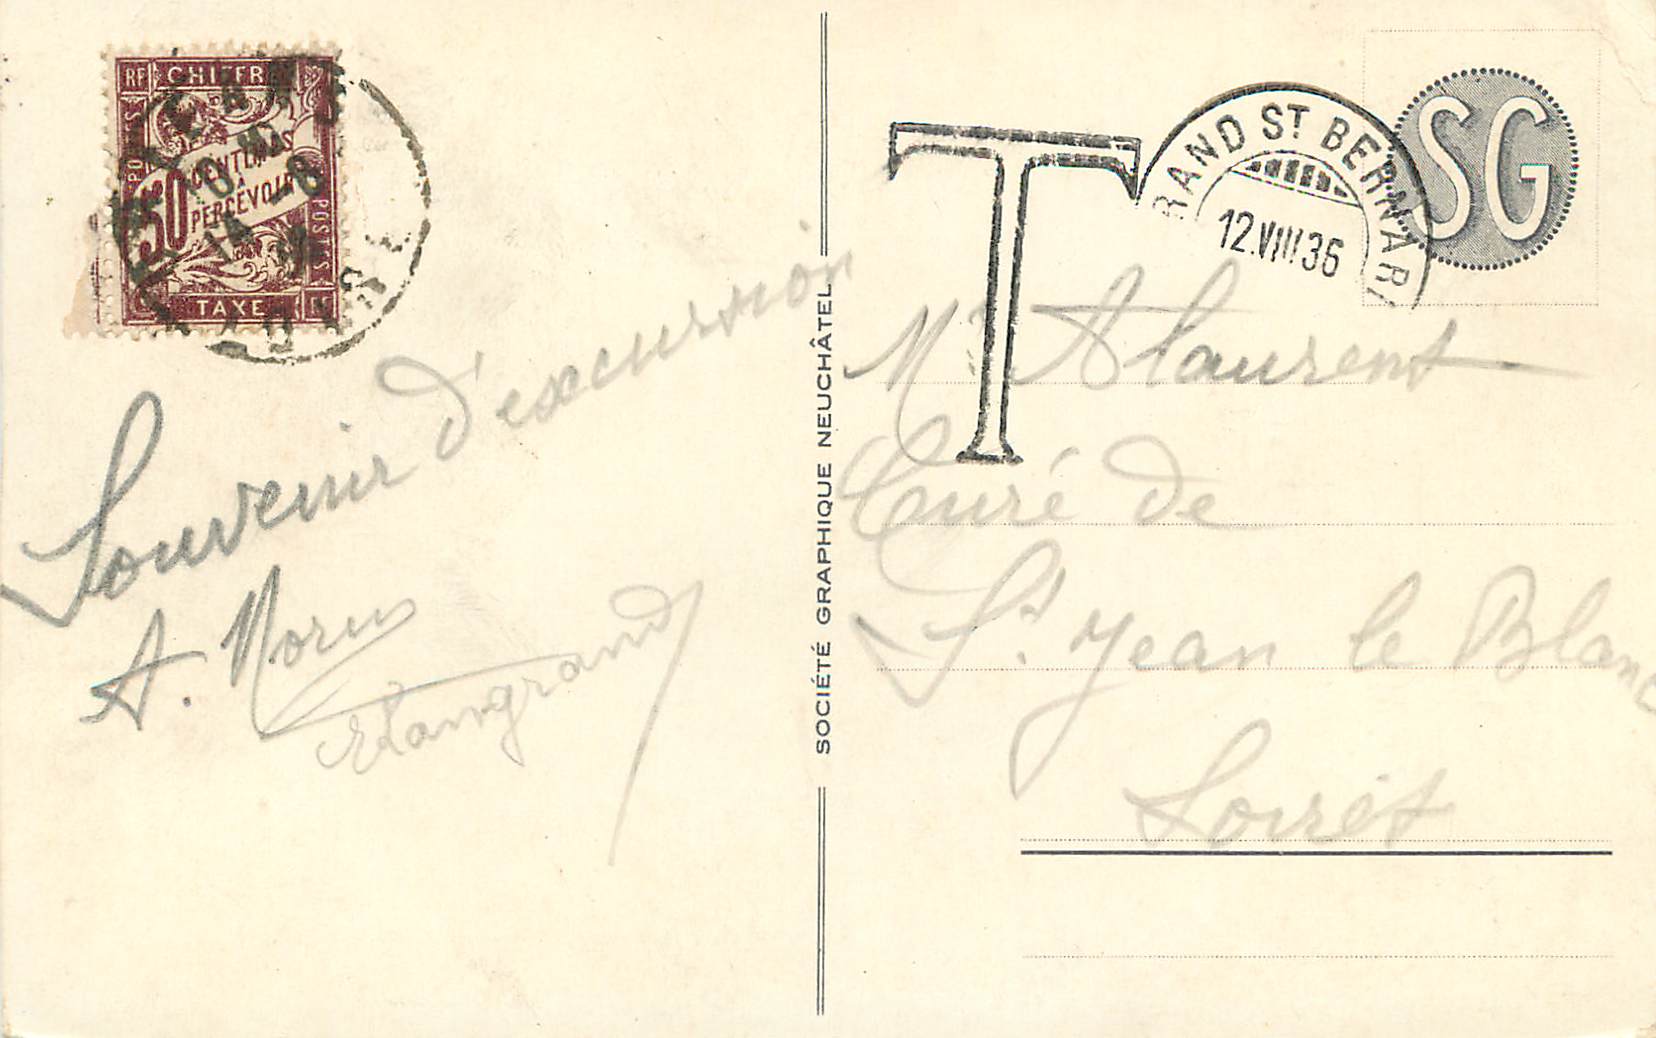 RF CHIFFRE
POSTES
50 CENTIMES
A
PERCEVOIR
POSTES
TAXE
Souvenir d'excursion
A.
SOCIÉTÉ GRAPHIQUE NEUCHÂTEL
T
RAND ST BERNAR
12.VIII 36
SG
Mr Alaurent
Curé de
St Jean le Blanc
Loiret